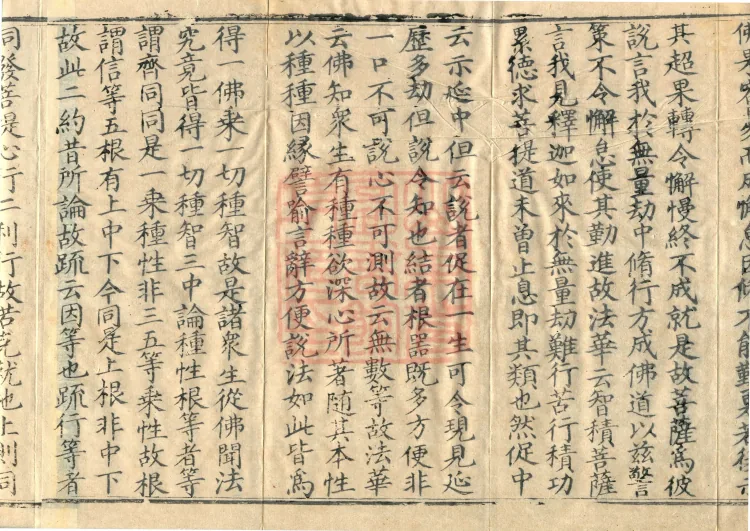 其超果轉令懈慢終不成就是故菩薩爲彼
說言我於無量劫中脩行方成佛道以兹警
策不令懈怠使其勤進故法華云智積菩薩
言我見釋迦如來於無量劫難行苦行積功
累德求菩提道未曾止息即其類也然促中
云示延中但云說者促在一生可令現見延
歷多劫但說令知也結者根器旣多方便非
一口不可說心不可測故云無數等故法華
云佛知衆生有種種欲深心所著隨其本性
以種種因緣譬喻言辭方便說法如此皆爲
得一佛乘一切種智故是諸衆生從佛聞法
究竟皆得一切種智三中論種性根等者等
謂齊同同是一乘種性非三五等乘性故根
謂信等五根有上中下今同是上根非中下
故此二約昔所論故疏云因等也疏行等者
同發菩提心行二利行故若究就也上則同